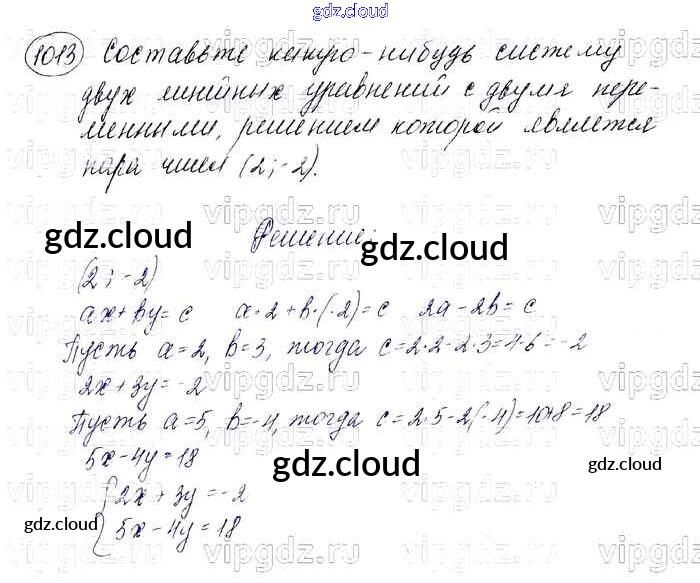 gdz.cloud
1013 Составьте какую-нибудь систему
двух линейных уравнений с двумя пере-
менными, решением которой является
пара чисел (2; -2).
Решение:
gdz.cloud gdz.cloud
(2; -2)
ax+by=c a·2+b·(-2)=c 2a-2b=c
Пусть a=2, b=3, тогда c=2·2-2·3=4-6=-2
2x+3y=-2
Пусть a=5, b=-4, тогда c=2·5-2(-4)=10+8=18
5x-4y=18
gdz.cloud
{2x+3y=-2
gdz.cloud gdz.cloud
5x-4y=18
vipgdz.ru